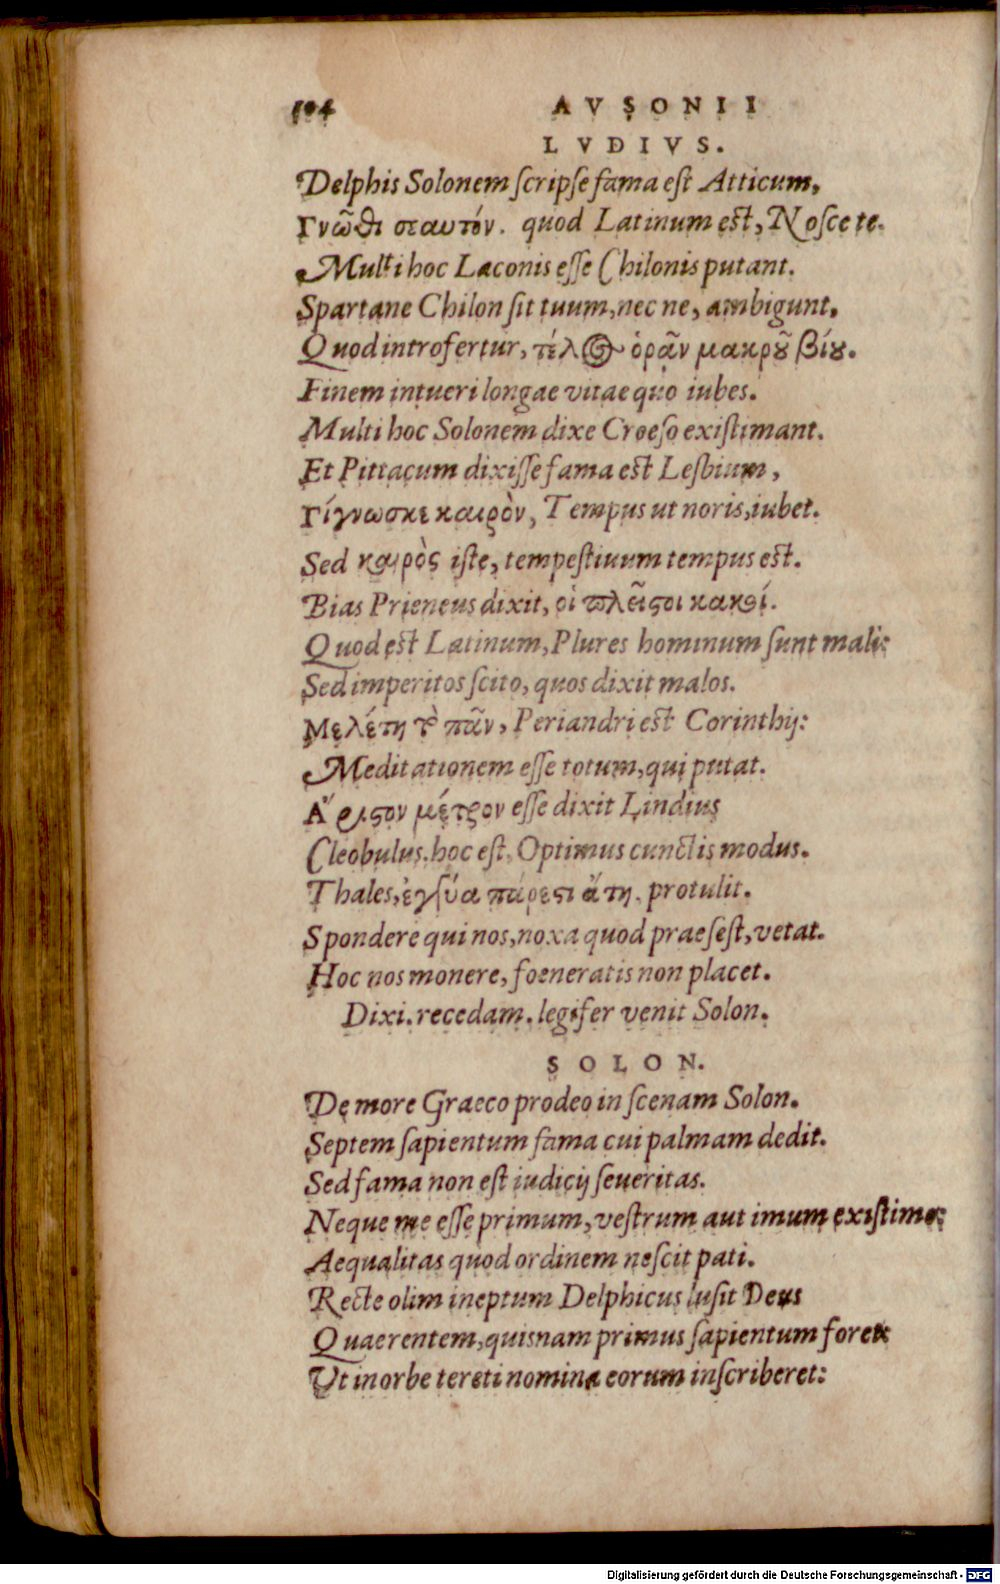 104 AVSONII
LVDIVS.
Delphis Solonem ſcripſe fama eſt Atticum,
Γνῶθι σεαυτόν. quod Latinum eſt, Noſce te.
Multi hoc Laconis eſſe Chilonis putant.
Spartane Chilon ſit tuum, nec ne, ambigunt,
Quod introfertur, τέλος ὁρᾶν μακροῦ βίου.
Finem intueri longae vitae quo iubes.
Multi hoc Solonem dixe Croeſo exiſtimant.
Et Pittacum dixiſſe fama eſt Leſbium,
Γίγνωσκε καιρὸν, Tempus ut noris, iubet.
Sed καιρὸς iſte, tempeſtiuum tempus eſt.
Bias Prieneus dixit, οἱ πλεῖϛοι κακοί.
Quod eſt Latinum, Plures hominum ſunt mali:
Sed imperitos ſcito, quos dixit malos.
Μελέτη τὸ πᾶν, Periandri eſt Corinthij:
Meditationem eſſe totum, qui putat.
Ἄριϛον μέτρον eſſe dixit Lindius
Cleobulus. hoc eſt, Optimus cunctis modus.
Thales, ἐγγύα πάρεϛι ἄτη. protulit.
Spondere qui nos, noxa quod praeſeſt, vetat.
Hoc nos monere, foeneratis non placet.
Dixi. recedam. legifer venit Solon.
SOLON.
De more Graeco prodeo in ſcenam Solon.
Septem ſapientum fama cui palmam dedit.
Sed fama non eſt iudicij ſeueritas.
Neque me eſſe primum, veſtrum aut imum exiſtimo:
Aequalitas quod ordinem neſcit pati.
Recte olim ineptum Delphicus luſit Deus
Quaerentem, quisnam primus ſapientum foret
Ut in orbe tereti nomina eorum inſcriberet:
Digitalisierung gefördert durch die Deutsche Forschungsgemeinschaft - DFG